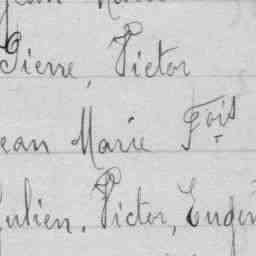 Pierre, Victor
Jean Marie Fois
Julien, Victor, Eugèn